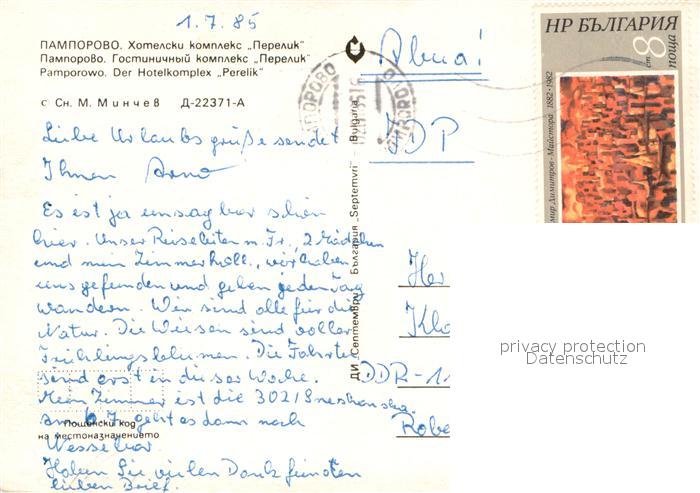 1.7.85
ПАМПОРОВО. Хотелски комплекс „Перелик"
Пампорово. Гостиничный комплекс „Перелик"
Pamporowo. Der Hotelkomplex „Perelik"
с Сн. М. Минчев Д-22371-А
Liebe Urlaubsgrüße sendet
Ihnen Arno
Es ist ja unsagbar schön
hier. Unser Reiseleiter m. Fr., 2 Mädchen
und mein Zimmerkoll., wir haben
uns gefunden und gehen jeden Tag
wandern. Wir sind alle für die
Natur. Die Wiesen sind voller
Frühlingsblumen. Die Fahrten
sind erst in dieser Woche.
Mein Zimmer ist die 302/
am 6.7. geht es dann nach
Пощенски код
на местоназначението
Nessebar.
Haben Sie vielen Dank für den
lieben Brief.
ДИ „Септември" - България „Septemvri" - Bulgaria
ПАМПОРОВО
НР БЪЛГАРИЯ
8 ст
поща
мир Димитров-Майстора 1882·1982
Авиа!
ГДР
Her
Kla
DDR-11
Robe
privacy protection
Datenschutz